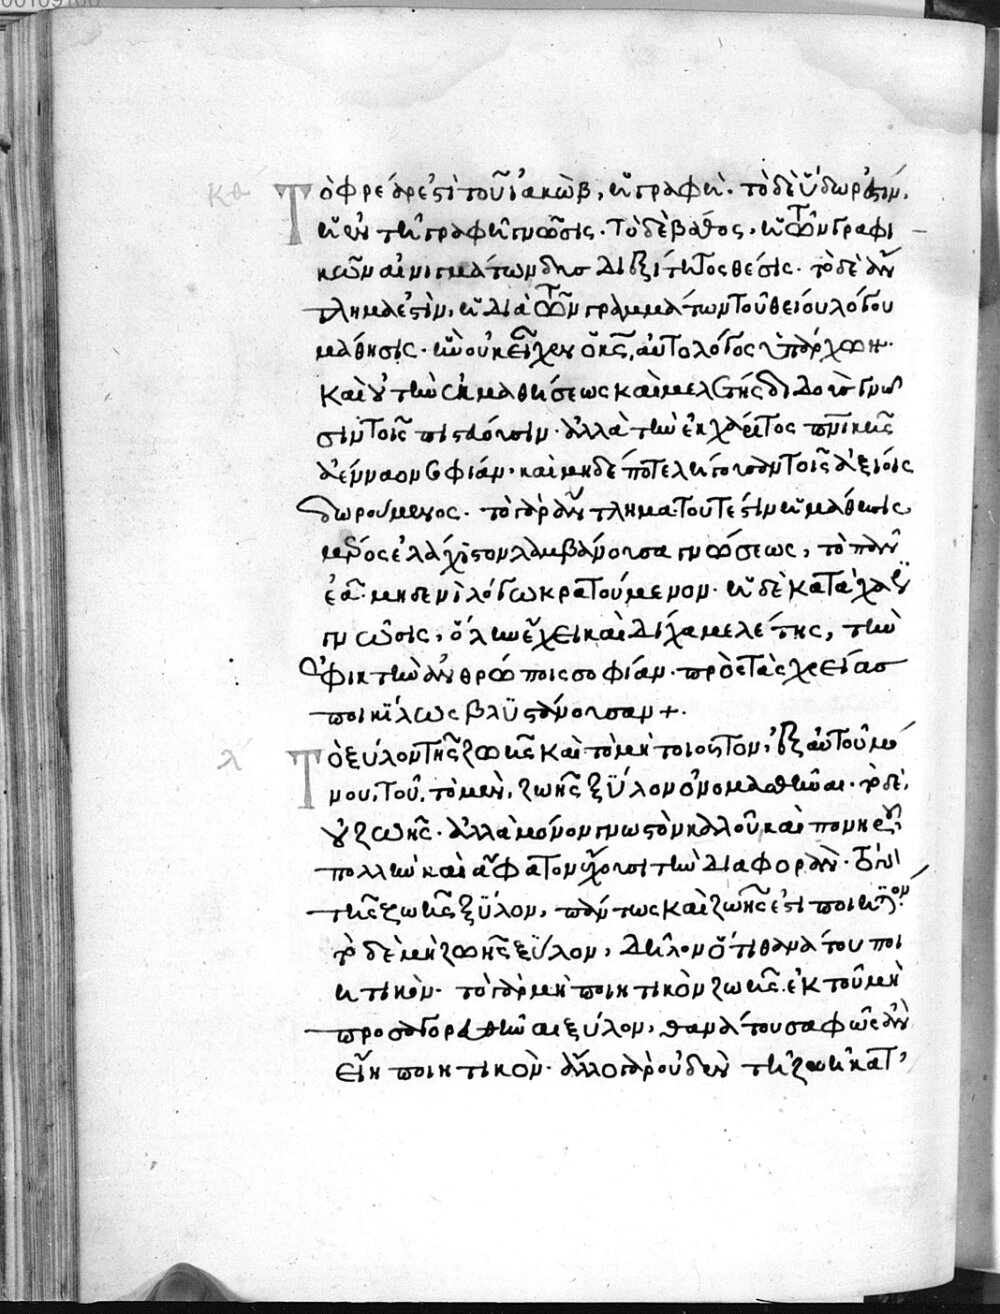 κθ΄ Τὸ φρέαρ ἐστὶ τοῦ ἰακὼβ, ἡ γραφή· τὸ δὲ ὕδωρ ἐστὶν,
ἡ ἐν τῇ γραφῇ γνῶσις. Τὸ δὲ βάθος, ἡ τῶν γραφι
κῶν αἰνιγμάτων δυσδιεξίτητος θέσις. τὸ δὲ ἄν
τλημα ἐστὶν, ἡ διὰ τῶν γραμμάτων τοῦ θείου λόγου
μάθησις· ἣν οὐκ εἶχεν ὁ κς, αὐτολόγος ὑπάρχων·
καὶ οὐ τὴν ἐκ μαθήσεως καὶ μελέτης διδοὺς γνῶ
σιν τοῖς πιστεύουσιν· ἀλλὰ τὴν ἐκ χάριτος πνικῆς
ἀένναον σοφίαν· καὶ μηδέποτε λήγουσαν τοῖς ἀξίοις
δωρούμενος. τὸ γὰρ ἄντλημα τουτέστιν ἡ μάθησις,
μέρος ἐλάχιστον λαμβάνουσα γνώσεως, τὸ πᾶν
ἐᾷ μηδενὶ λόγω κρατούμενον. ἡ δὲ κατὰ χάριν
γνῶσις, ὅλην ἔχει καὶ δίχα μελέτης, τὴν
ἐφικτὴν ἀνθρώποις σοφίαν· πρὸς τὰς χρείας
ποικίλως βλυστάνουσαν +.
λ΄ Τὸ ξύλον τῆς ζωῆς καὶ τὸ μὴ τοιοῦτον, ἐξ αὐτοῦ μό
νου, τοῦ, τὸ μὲν, ζωῆς ξύλον ὀνομασθῆναι· τὸ δὲ,
οὐ ζωῆς. ἀλλὰ μόνον γνωστὸν καλοῦ καὶ πονηροῦ,
πολλὴν καὶ ἄφατον ἔχουσι τὴν διαφοράν.
τῆς ζωῆς ξύλον, πάντως καὶ ζωῆς ἐστὶ ποιητικόν·
τὸ δὲ μὴ ζωῆς ξύλον, δῆλον ὅτι θανάτου ποι
ητικόν. τὸ γὰρ μὴ ποιητικὸν ζωῆς ἐκ τοῦ μὴ
προσαγορευθῆναι ξύλον, θανάτου σαφῶς ἂν
εἴη ποιητικόν. ἄλλο γὰρ οὐδὲν τῇ ζωῇ κατ'